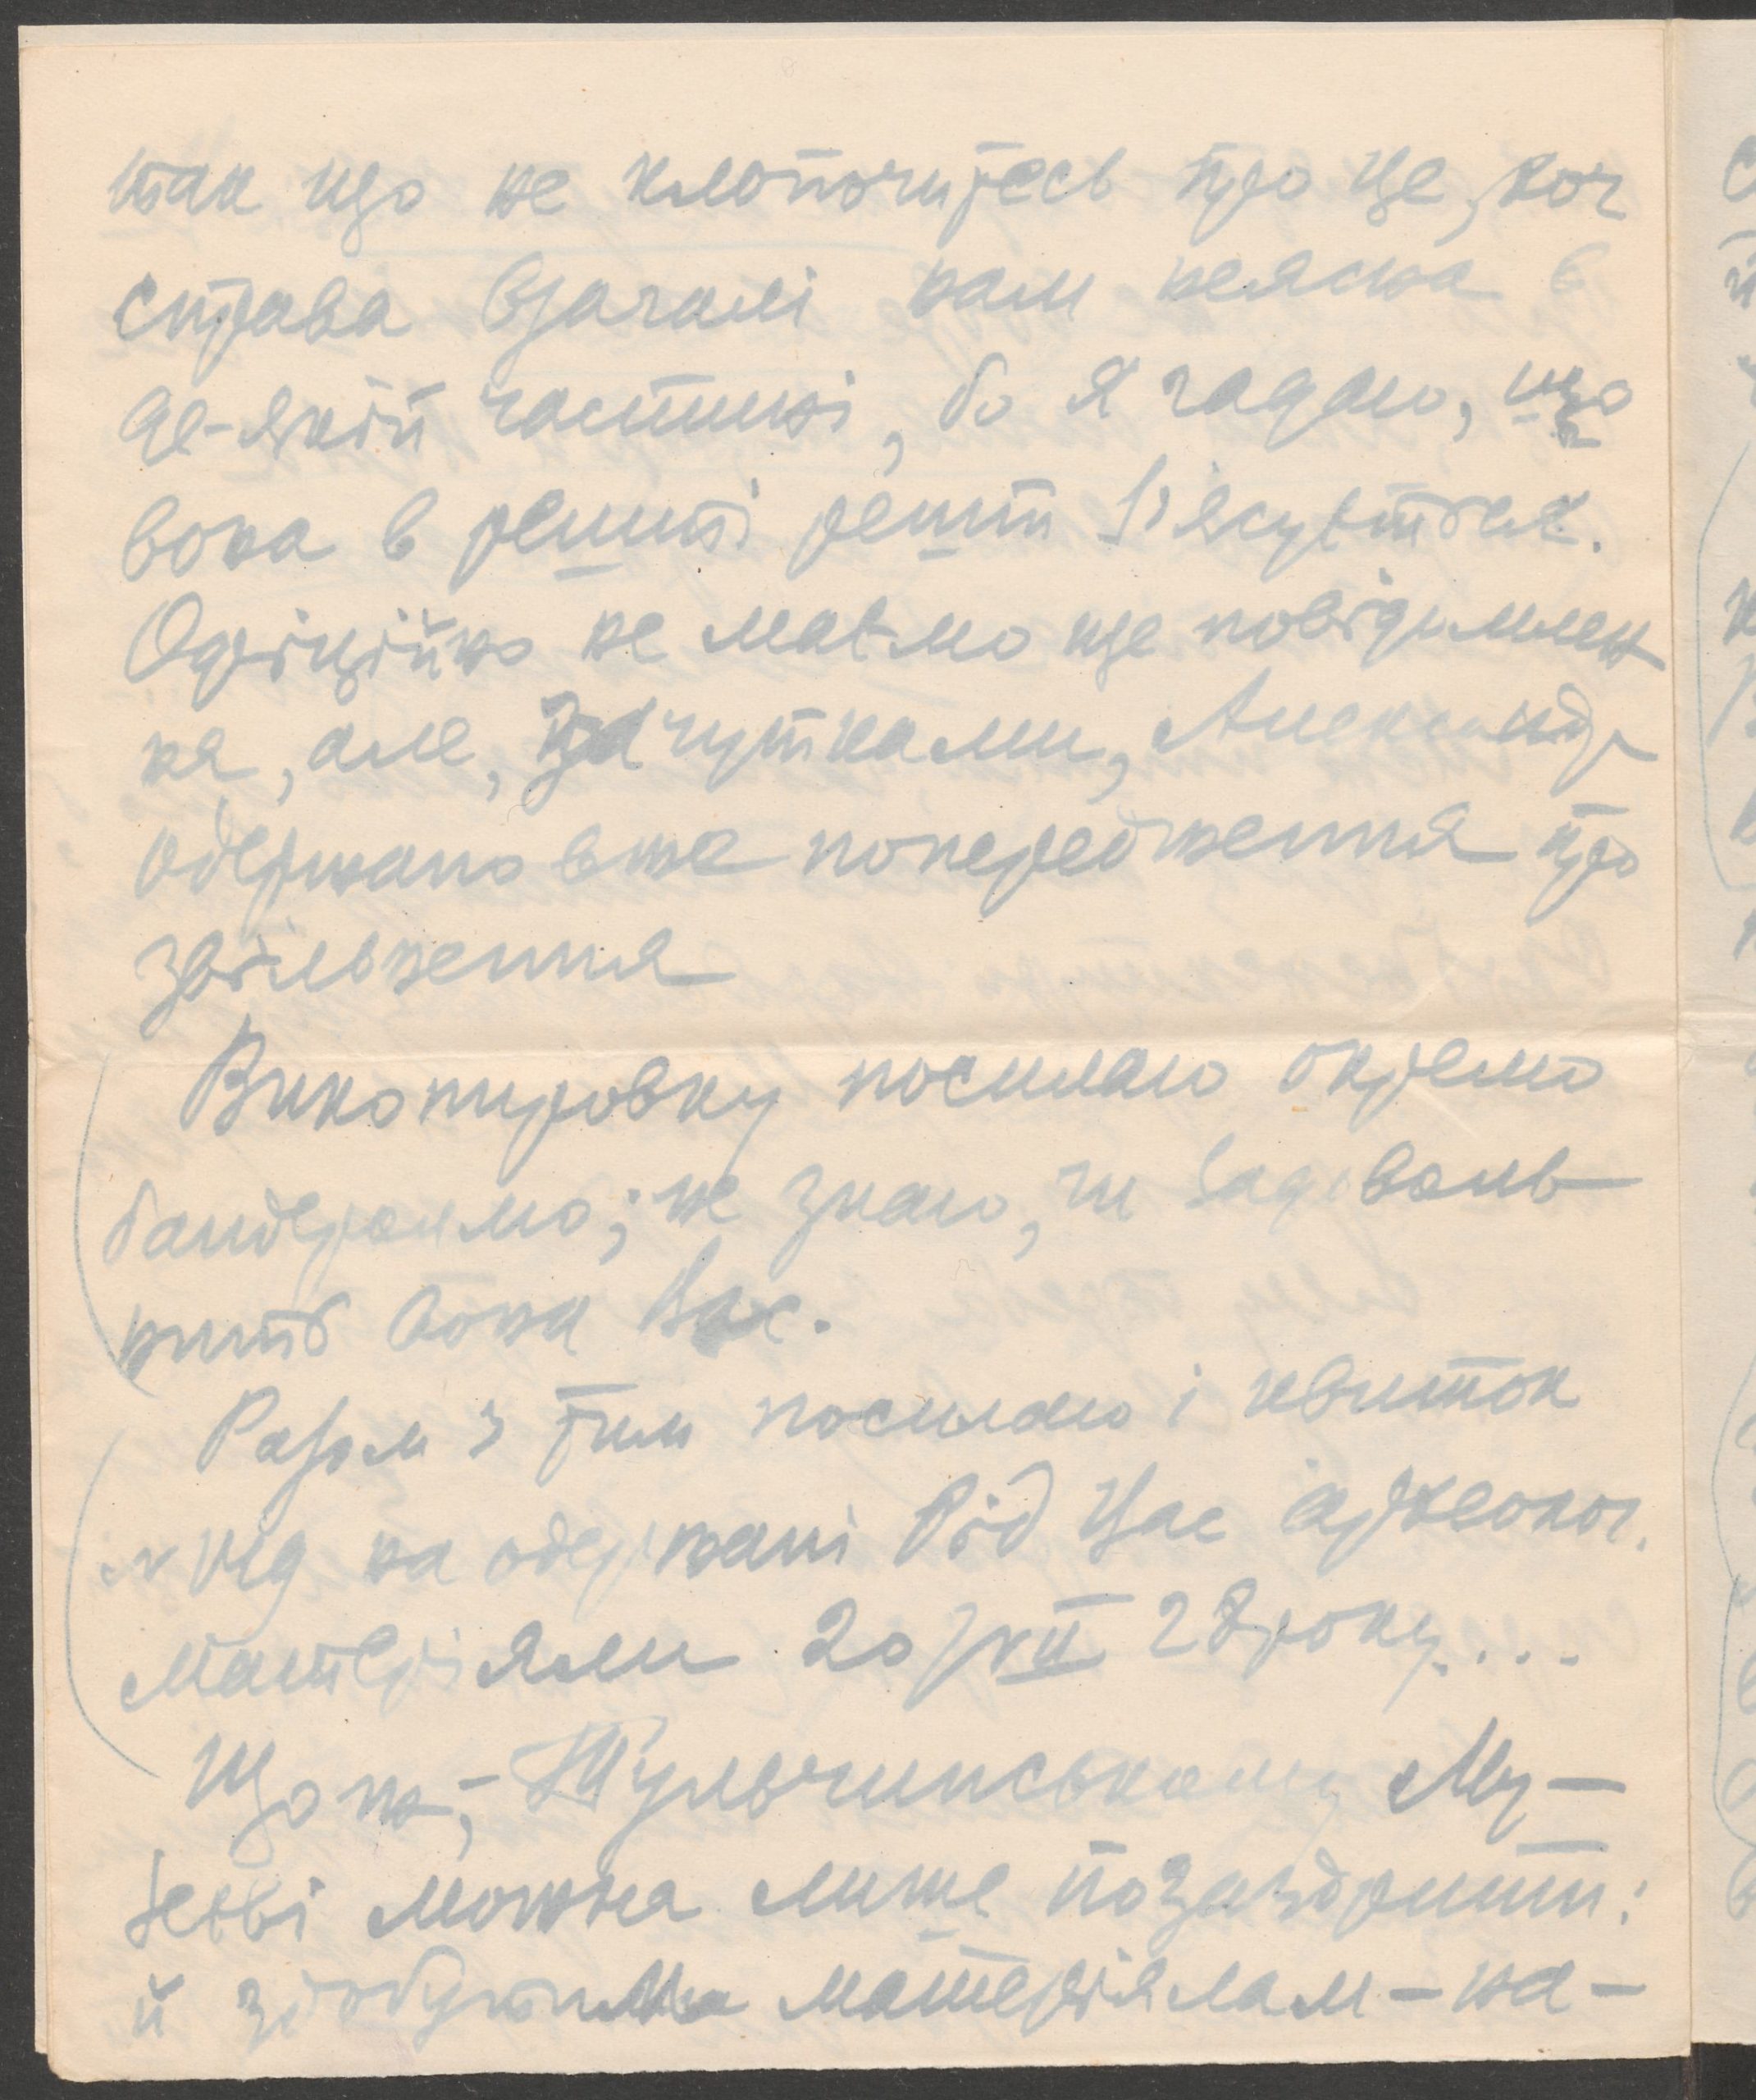 так що не клопочитесь про це, хоч
справа взагалі нам неясна в
де-якій частині, бо я гадаю, що
вона в решті решт з'ясується.
Офіційно не маємо ще повідомлен
ня, але, за чутками, Александр
одержано вже попередження про
звільнення
Викопировку посилаю окремо
бандеролмо; не знаю, чи задоволь
нить вона Вас.
Разом з тим посилаю і квиток
на одержані від Вас археолог.
матеріяли 20/VII 28 року....
Що ж,- Тульчинському Му-
зеєві можна лише позаздрити:
й здобутим матеріялам - на-